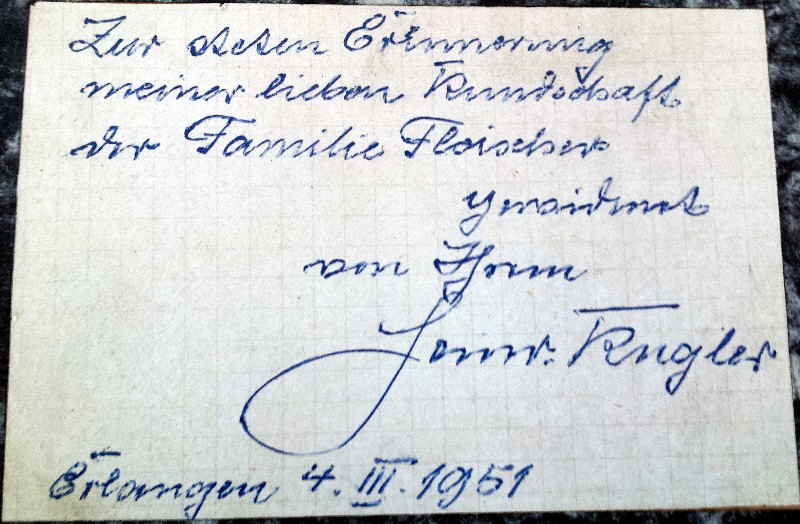 Zur steten Erinnerung
meiner lieben Kundschaft
der Familie Fleischer
gewidmet
von Ihrem
Heinr. Kugler
Erlangen 4. III. 1951